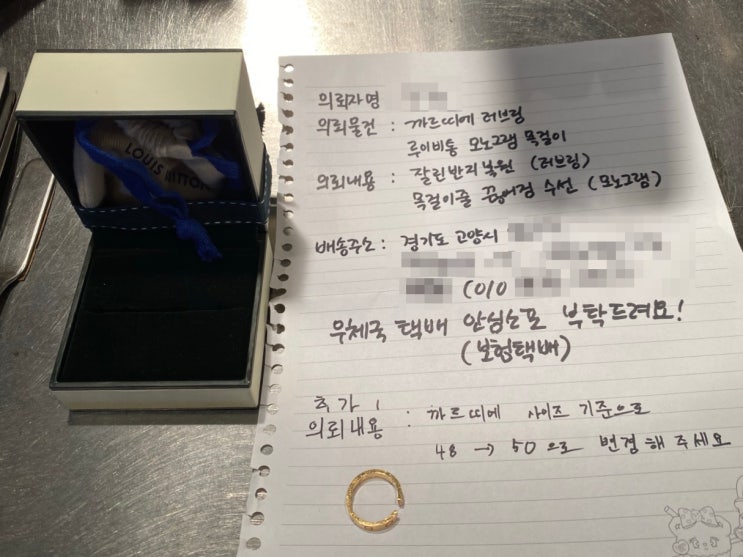 LOUIS VUITTON
의뢰자명
의뢰물건 : 까르띠에 러브링
루이비통 모노그램 목걸이
의뢰내용 : 잘린반지복원 (러브링)
목걸이줄 끊어짐 수선 (모노그램)
배송주소 : 경기도 고양시
(010
우체국 택배 안심소포 부탁드려요!
(보험택배)
추가
의뢰내용 : 까르띠에 사이즈 기준으로
48 → 50으로 변경해주세요